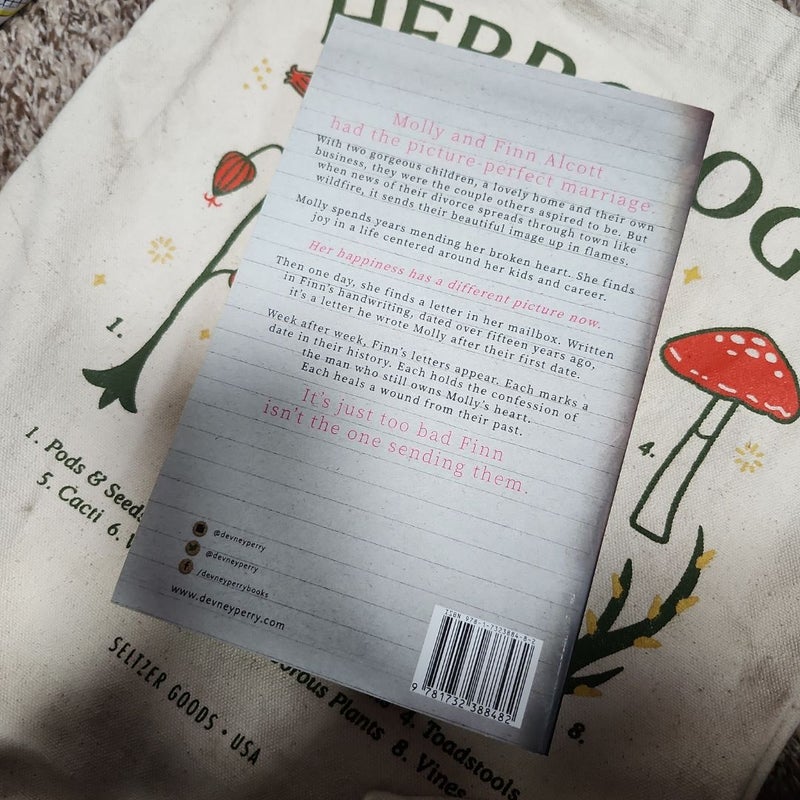 HERBO
OG
1.
4.
1. Pods & Seeds
5. Cacti 6.
Molly and Finn Alcott
had the picture-perfect marriage.
With two gorgeous children, a lovely home and their own
business, they were the couple others aspired to be. But
when news of their divorce spreads through town like
wildfire, it sends their beautiful image up in flames.
Molly spends years mending her broken heart. She finds
joy in a life centered around her kids and career.
Her happiness has a different picture now.
Then one day, she finds a letter in her mailbox. Written
in Finn's handwriting, dated over fifteen years ago,
it's a letter he wrote Molly after their first date.
Week after week, Finn's letters appear. Each marks a
date in their history. Each holds the confession of
the man who still owns Molly's heart.
Each heals a wound from their past.
It's just too bad Finn
isn't the one sending them.
@devneyperry
@devneyperry
/devneyperrybooks
www.devneyperry.com
ISBN 978-1-7323884-8-2
9 781732 388482
8.
orous Plants 4. Toadstools
8. Vines
SELTZER GOODS • USA